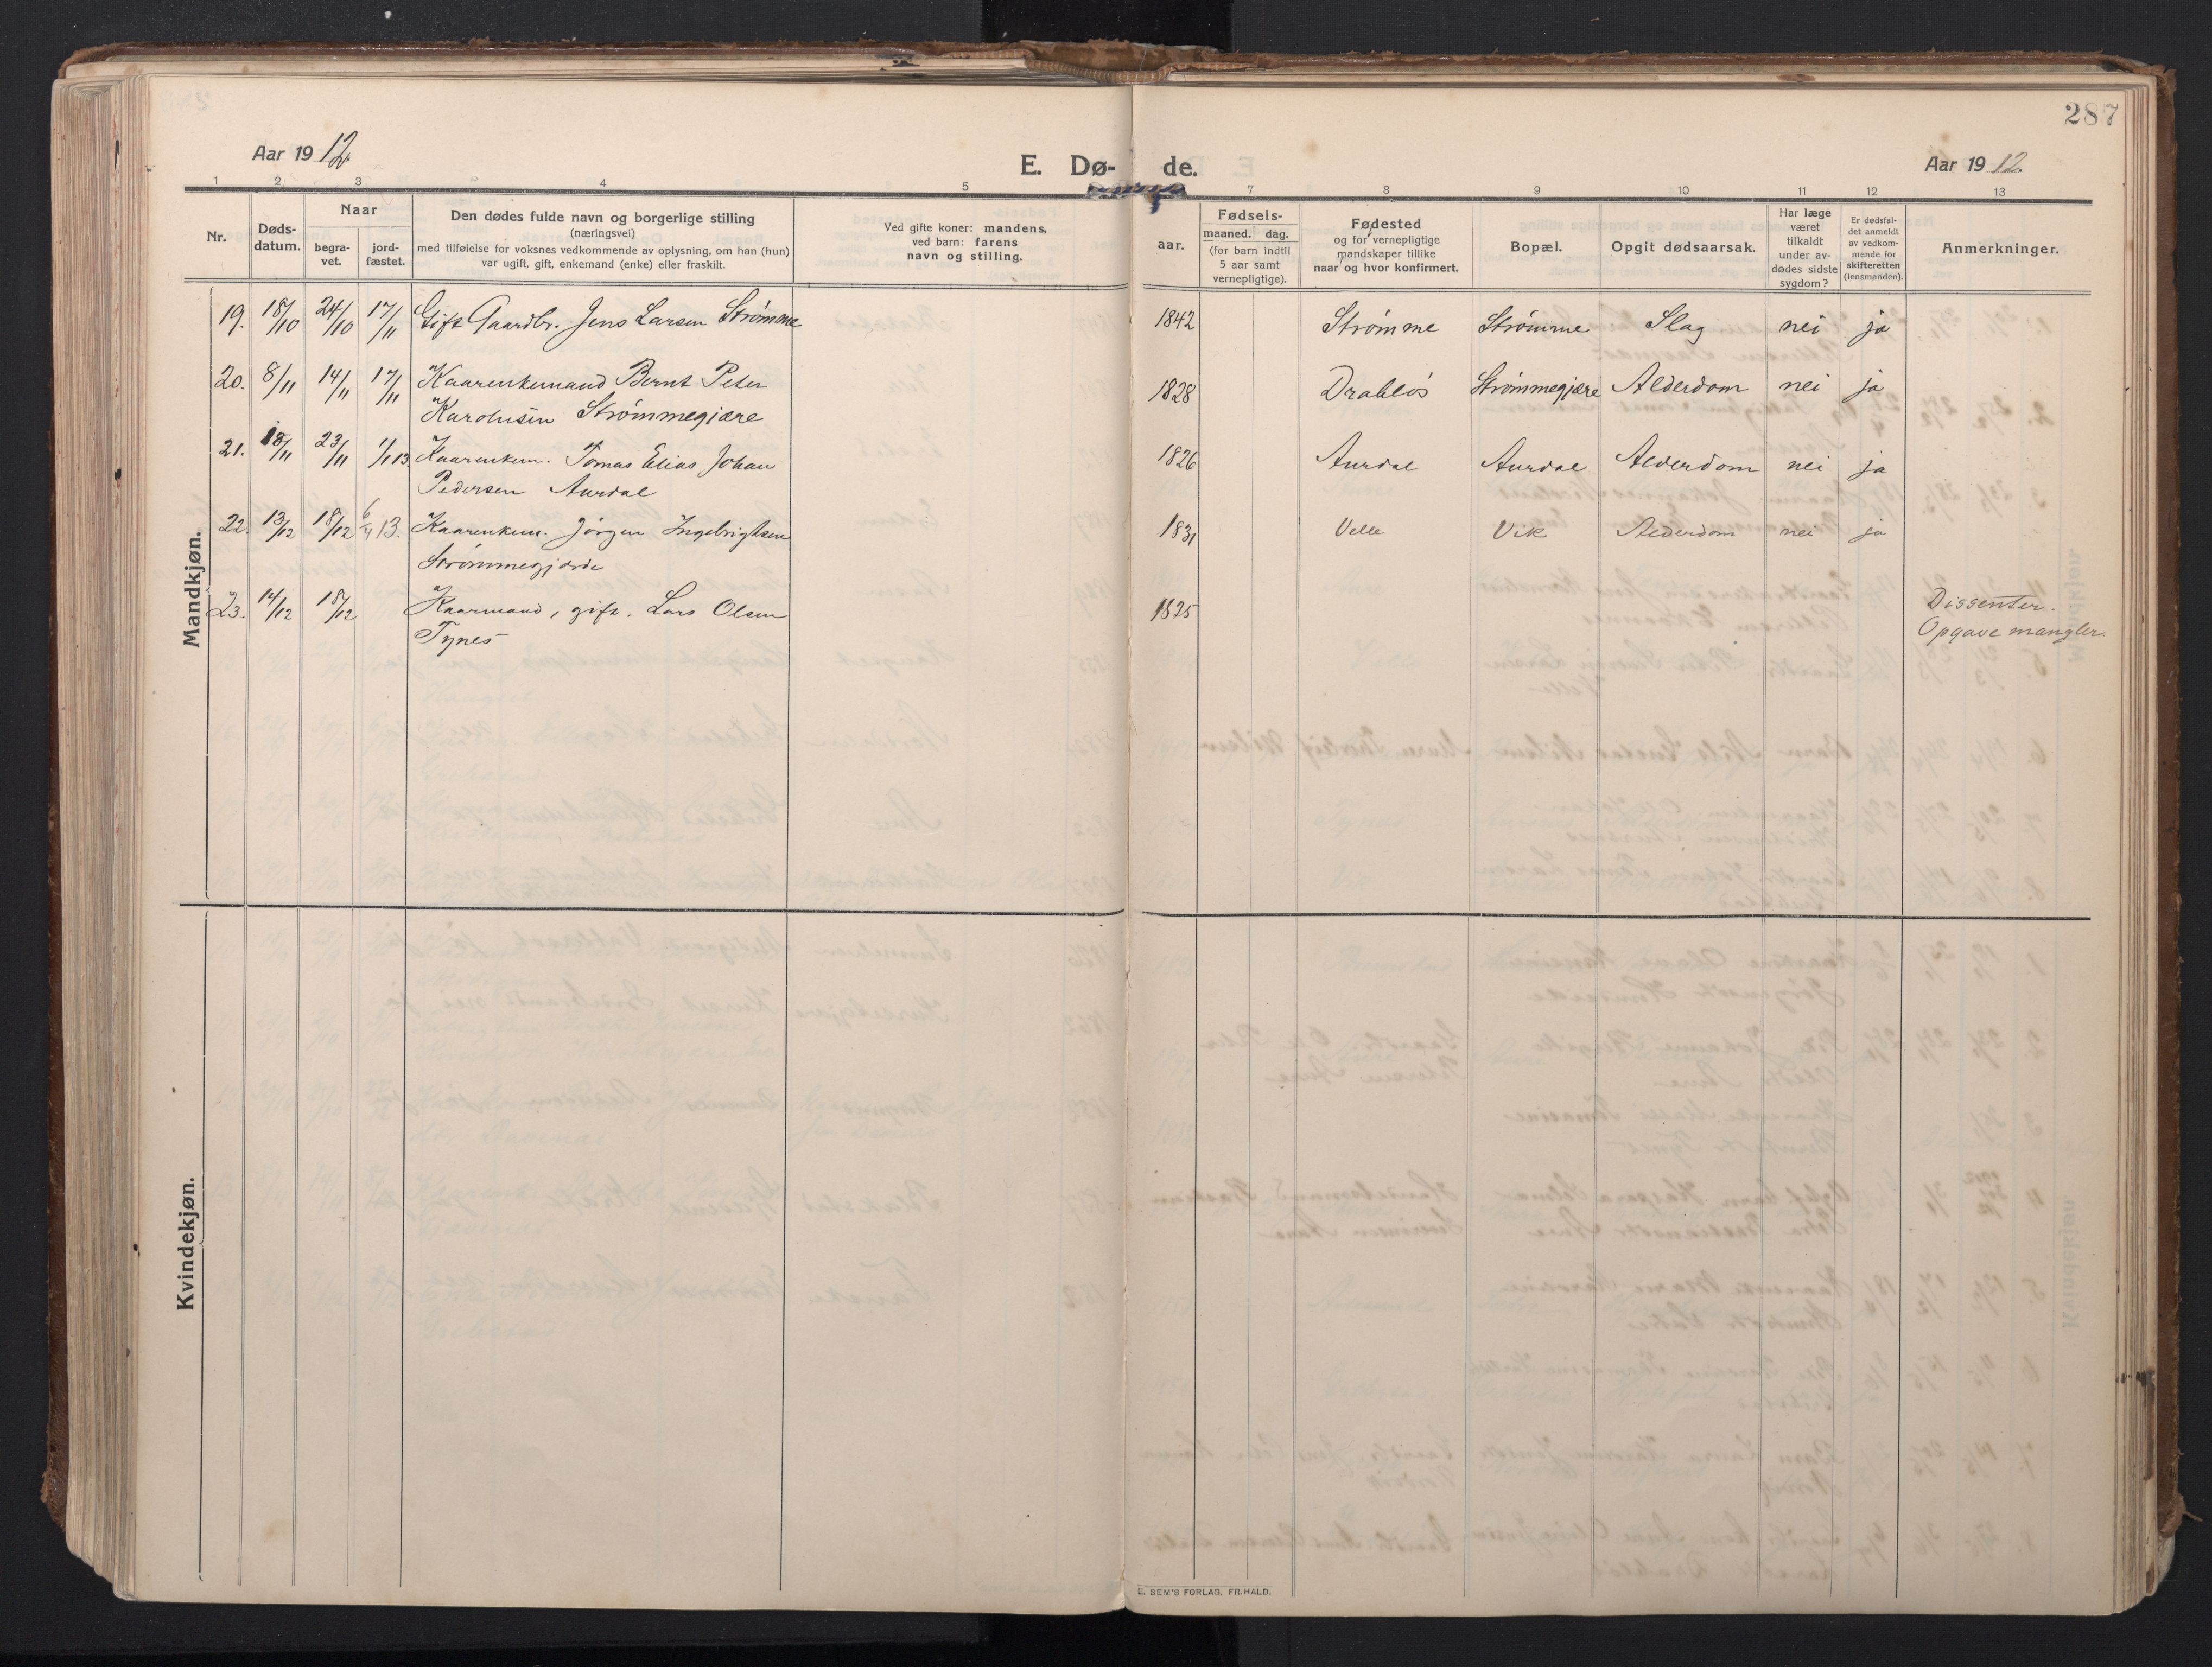 287
Aar 1912
E. Dø- de.
Aar 1912.
1 2 3 4 5 7 8 9 10 11 12 13
Nr.
Døds-
datum.
Naar
begra-
vet.
jord-
fæstet.
Den dødes fulde navn og borgerlige stilling
(næringsvei)
med tilføielse for voksnes vedkommende av oplysning, om han (hun)
var ugift, gift, enkemand (enke) eller fraskilt.
Ved gifte koner: mandens,
ved barn: farens
navn og stilling.
aar.
Fødsels-
maaned. dag.
(for barn indtil
5 aar samt
vernepligtige).
Fødested
og for vernepligtige
mandskaper tillike
naar og hvor konfirmert.
Bopæl.
Opgit dødsaarsak.
Har læge
været
tilkaldt
under av-
dødes sidste
sygdom?
Er dødsfal-
det anmeldt
av vedkom-
mende for
skifteretten
(lensmanden).
Anmerkninger.
Mandkjøn.
19. 18/10 24/10 17/11 Gift Gaardbr. Jens Larsen Strømme 1842 Strømme Strømme Slag nei ja
20. 8/11 14/11 17/11 Kaarenkemand Bernt Peter 1828 Drabløs Strømmegjære Alderdom nei ja
Karolusen Strømmegjære
21. 18/11 23/11 1/1 13 Kaarenkem. Tomas Elias Johan 1826 Aurdal Aurdal Alderdom nei ja
Pedersen Aurdal
22. 13/12 18/12 6/4 13. Kaarenkem. Jørgen Ingebrigtsen 1831 Velle Vik Alderdom nei ja
Strømmegjærde
23. 14/12 18/12 Kaarmand, gift. Lars Olsen 1825 Dissenter.
Tynes Opgave mangler.
Kvindekjøn.
E. SEM'S FORLAG, FR.HALD.